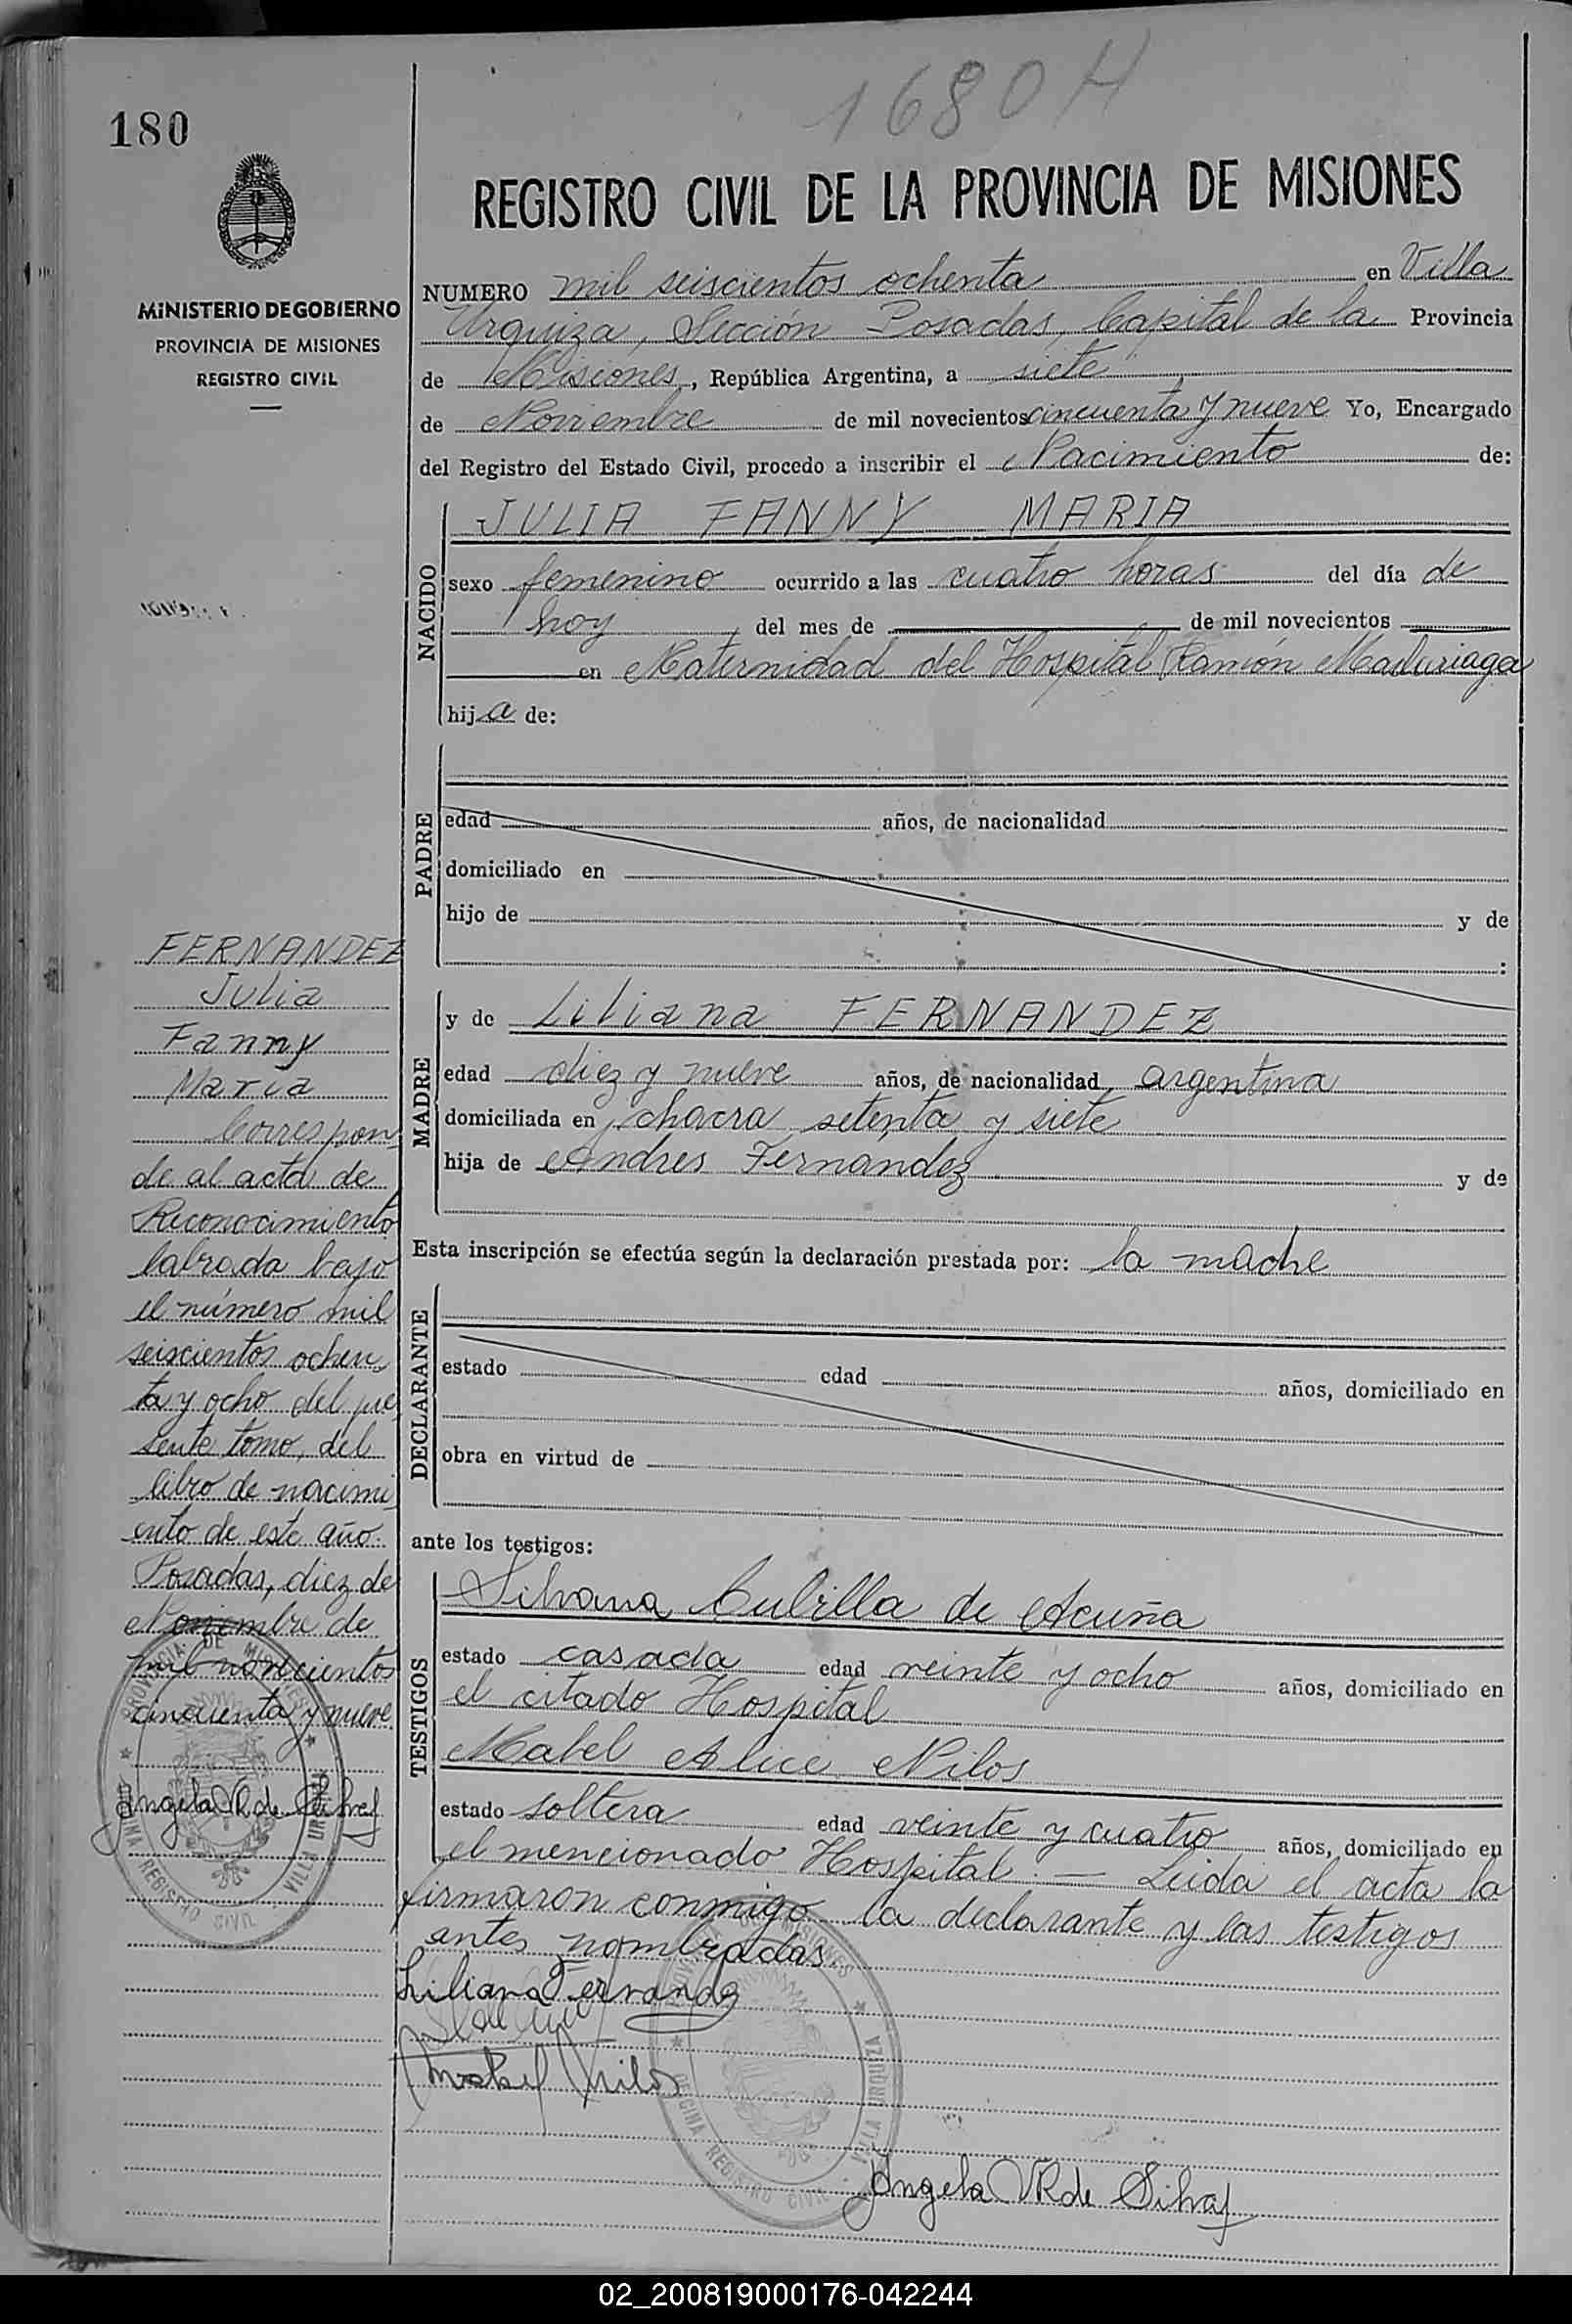 1680 H
180
REGISTRO CIVIL DE LA PROVINCIA DE MISIONES
MINISTERIO DE GOBIERNO
PROVINCIA DE MISIONES
REGISTRO CIVIL
NUMERO mil seiscientos ochenta en Villa
Urquiza, Sección Posadas, Capital de la Provincia
de Misiones, República Argentina, a siete
de Noviembre de mil novecientos cincuenta y nueve Yo, Encargado
del Registro del Estado Civil, procedo a inscribir el Nacimiento de:
NACIDO
JULIA FANNY MARIA
sexo femenino ocurrido a las cuatro horas del día de
hoy del mes de de mil novecientos
en Maternidad del Hospital Ramón Madariaga
hija de:
PADRE
edad años, de nacionalidad
domiciliado en
hijo de y de
:
MADRE
y de Liliana FERNANDEZ
edad diez y nueve años, de nacionalidad argentina
domiciliada en chacra setenta y siete
hija de Andres Fernandez y de
Esta inscripción se efectúa según la declaración prestada por: la madre
DECLARANTE
estado edad años, domiciliado en
obra en virtud de
ante los testigos:
TESTIGOS
Silvana Cubilla de Acuña
estado casada edad veinte y ocho años, domiciliado en
el citado Hospital
Mabel Alice Nilos
estado soltera edad veinte y cuatro años, domiciliado en
el mencionado Hospital. — Leida el acta la
firmaron conmigo la declarante y las testigos
antes nombradas
Liliana Fernandez
Mabel Nilos
Angela VR de Silva
FERNANDEZ
Julia
Fanny
Maria
Correspon
de al acta de
Reconocimiento
labrada bajo
el número mil
seiscientos ochen
ta y ocho del pre
sente tomo, del
libro de nacimi
ento de este año.
Posadas, diez de
Noviembre de
mil novecientos
cincuenta y nueve
Angela VR de Silva
PROVINCIA DE MISIONES
OFICINA REGISTRO CIVIL
VILLA URQUIZA
MISIONES
OFICINA REGISTRO CIVIL
VILLA URQUIZA
02_200819000176-042244